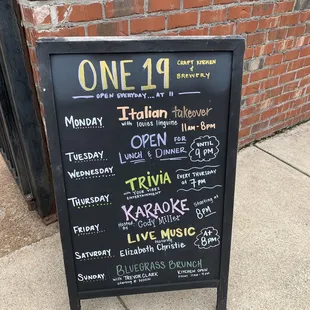 ONE 19 CRAFT KITCHEN &
BREWERY
OPEN EVERYDAY... AT 11
MONDAY Italian takeover
with louies linguine 11AM-8PM
TUESDAY OPEN FOR
WEDNESDAY LUNCH & DINNER UNTIL
9PM
THURSDAY TRIVIA EVERY THURSDAY
AT 7PM
WITH YOUR VIBES
ENTERTAINMENT
FRIDAY KARAOKE Starting at
8PM
Hosted By Cody Miller
SATURDAY LIVE MUSIC AT
8PM
Elizabeth Christie
SUNDAY BLUEGRASS BRUNCH
WITH TREVOR CLARK KITCHEN OPEN